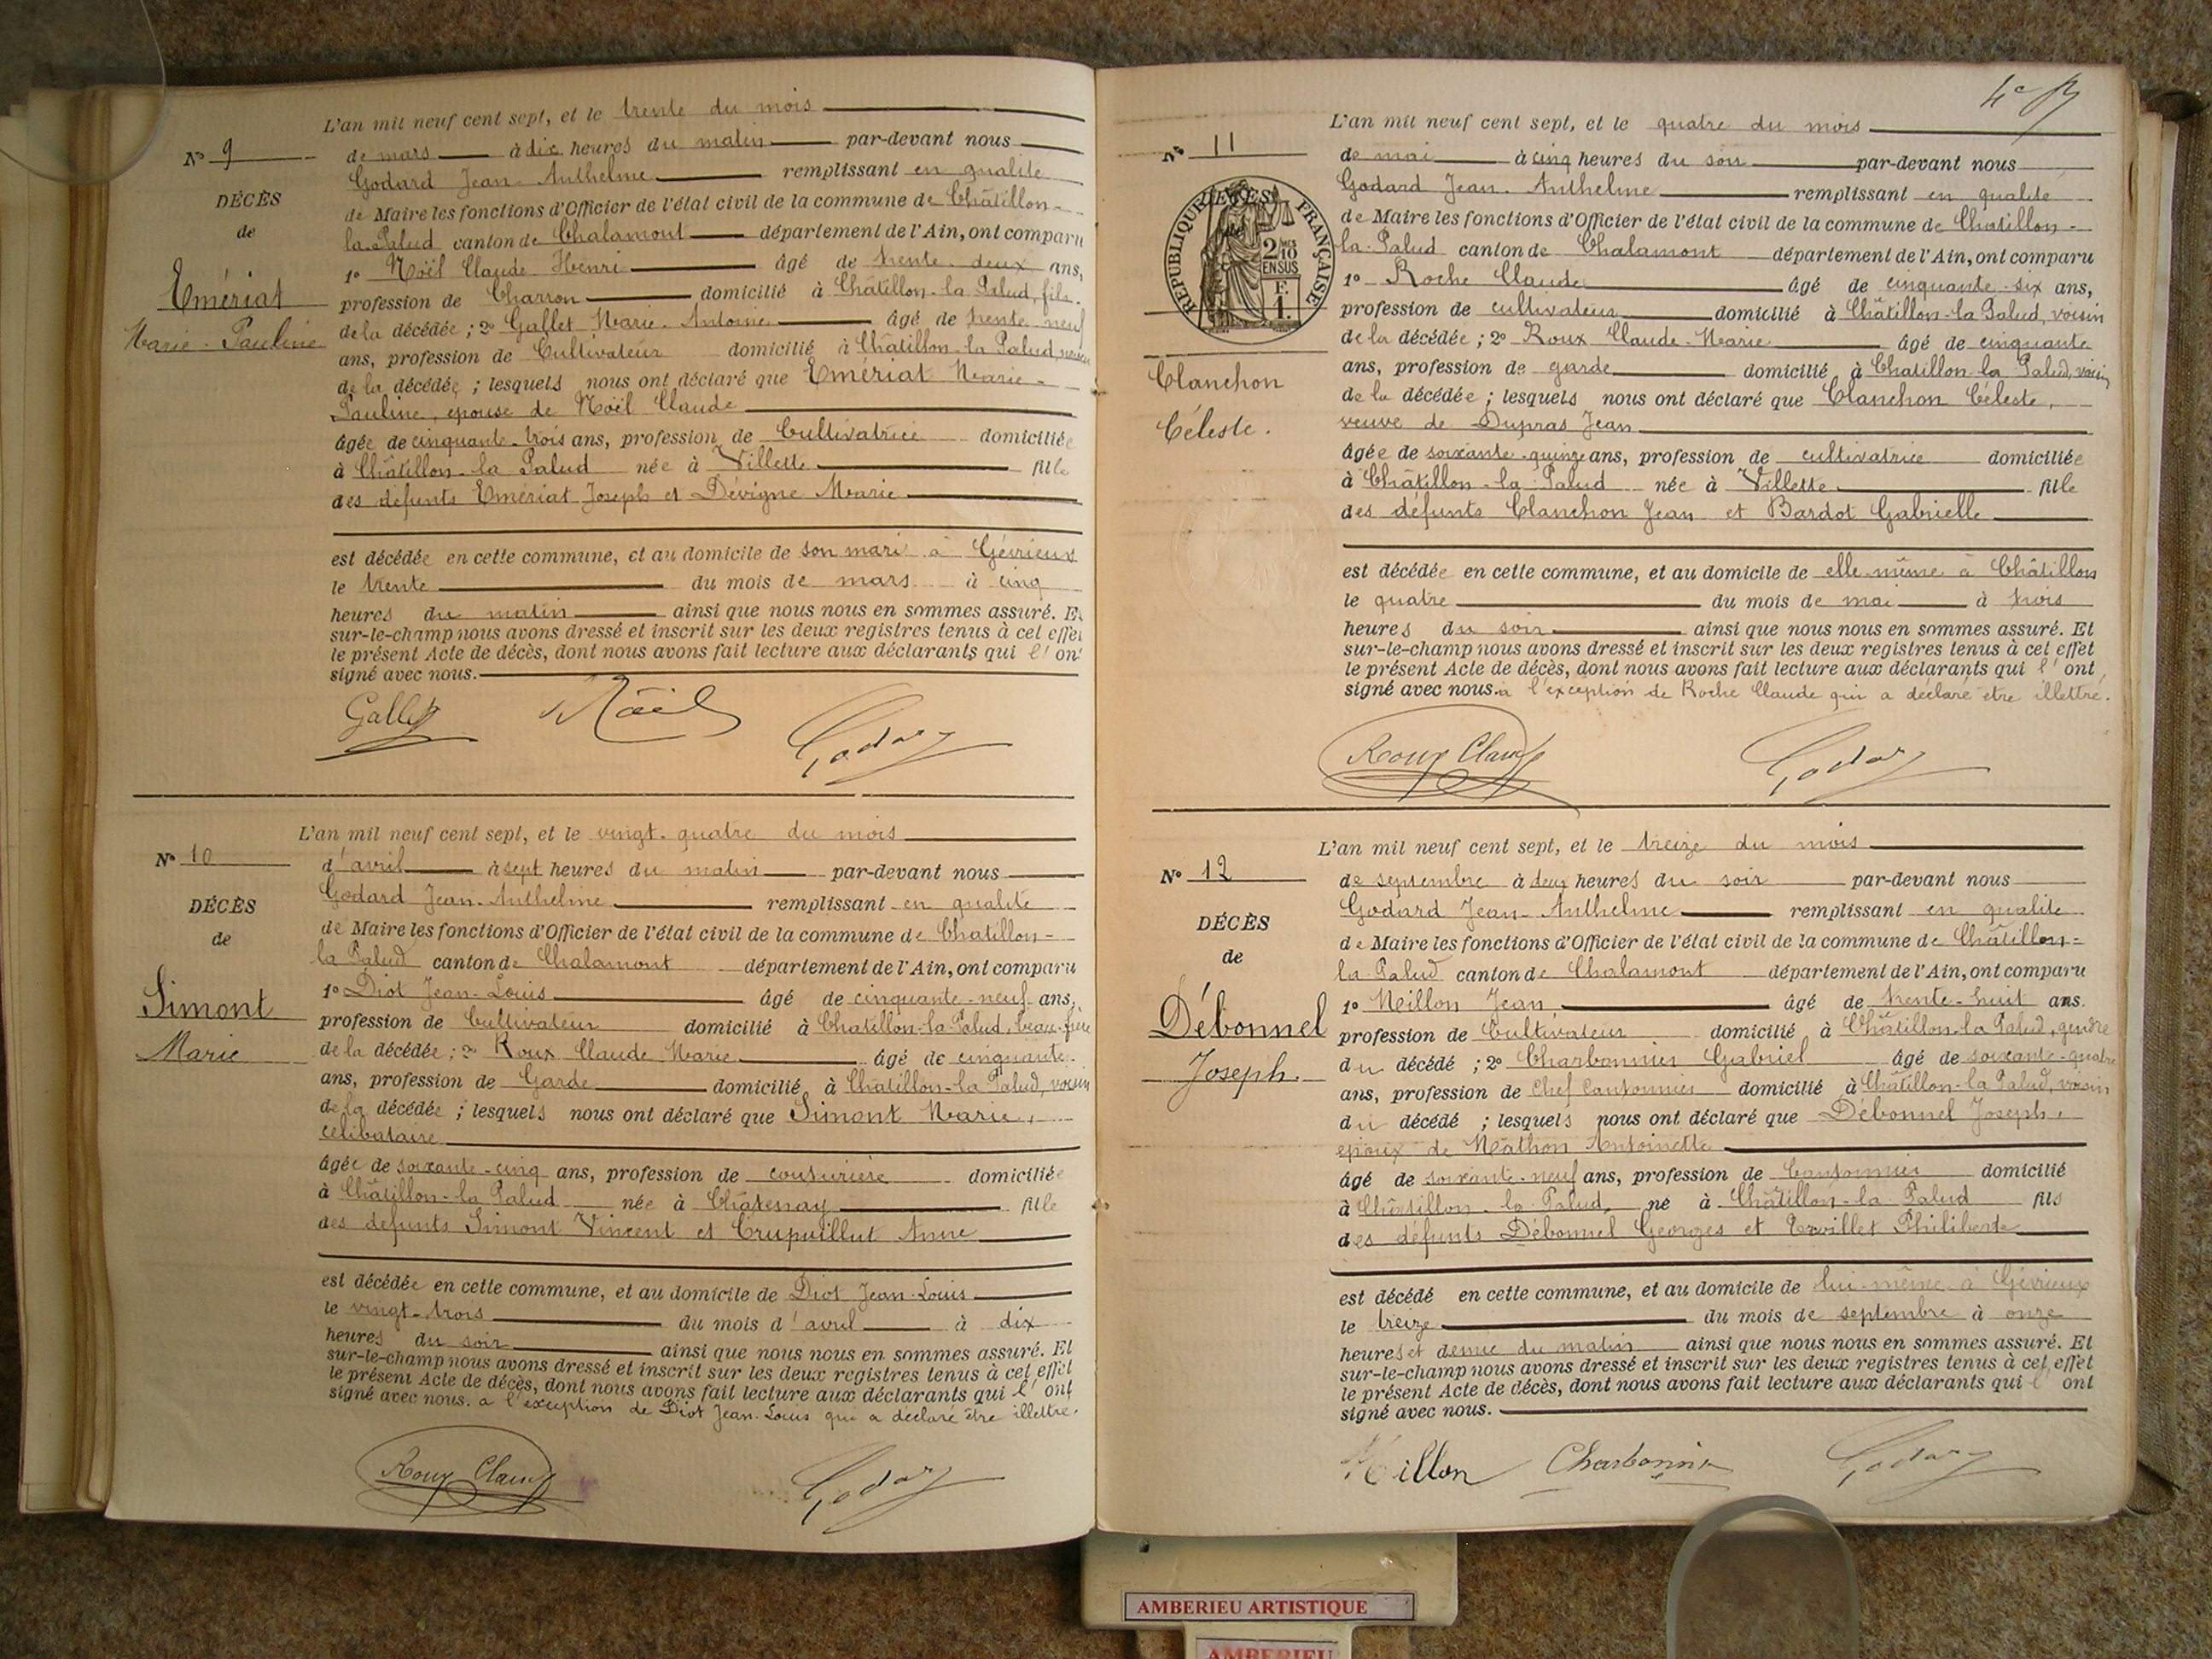 L'an mil neuf cent sept, et le trente du mois
N° 9
de mars à dix heures du matin par-devant nous
Godard Jean-Anthelme remplissant en qualité
DÉCÈS
de Maire les fonctions d'Officier de l'état civil de la commune de Châtillon-
de
la-Palud canton de Chalamont département de l'Ain, ont comparu
1° Noël Claude Henri âgé de trente-deux ans,
Emériat
profession de Charron domicilié à Châtillon-la Palud, fils
Marie-Pauline
de la décédée ; 2° Gallet Marie-Antoine âgé de trente neuf
ans, profession de Cultivateur domicilié à Châtillon-la Palud, neveu
de la décédée ; lesquels nous ont déclaré que Emériat Marie-
Pauline, épouse de Noël Claude
âgée de cinquante-trois ans, profession de Cultivatrice domiciliée
à Châtillon-la Palud née à Villette fille
des défunts Emériat Joseph et Dévigne Marie
est décédée en cette commune, et au domicile de son mari à Gévrieux
le trente du mois de mars à cinq
heures du matin ainsi que nous nous en sommes assuré. Et
sur-le-champ nous avons dressé et inscrit sur les deux registres tenus à cet effet
le présent Acte de décès, dont nous avons fait lecture aux déclarants qui l'ont
signé avec nous.
Gallet Noël Godard
L'an mil neuf cent sept, et le vingt-quatre du mois
N° 10
d'avril à sept heures du matin par-devant nous
Godard Jean-Anthelme remplissant en qualité
DÉCÈS
de Maire les fonctions d'Officier de l'état civil de la commune de Chatillon-
de
la Palud canton de Chalamont département de l'Ain, ont comparu
1° Diot Jean-Louis âgé de cinquante-neuf ans,
Simont
profession de Cultivateur domicilié à Chatillon-la-Palud, beau-frère
Marie
de la décédée ; 2° Roux Claude Marie âgé de cinquante
ans, profession de Garde domicilié à Chatillon-la Palud, voisin
de la décédée ; lesquels nous ont déclaré que Simont Marie,
célibataire
âgée de soixante-cinq ans, profession de couturière domiciliée
à Châtillon-la Palud née à Châtenay fille
des défunts Simont Vincent et Crupuillut Anne
est décédée en cette commune, et au domicile de Diot Jean-Louis
le vingt-trois du mois d'avril à dix
heures du soir ainsi que nous nous en sommes assuré. Et
sur-le-champ nous avons dressé et inscrit sur les deux registres tenus à cet effet
le présent Acte de décès, dont nous avons fait lecture aux déclarants qui l'ont
signé avec nous. à l'exception de Diot Jean-Louis qui a déclaré être illettré.
Roux Claude Godard
4e
L'an mil neuf cent sept, et le quatre du mois
N° 11
de mai à cinq heures du soir par-devant nous
Godard Jean-Anthelme remplissant en qualité
RÉPUBLIQUE FRANÇAISE
2/10 EN SUS
F. 1.
de Maire les fonctions d'Officier de l'état civil de la commune de Chatillon-
la-Palud canton de Chalamont département de l'Ain, ont comparu
1° Roche Claude âgé de cinquante-six ans,
profession de cultivateur domicilié à Châtillon-la Palud, voisin
de la décédée ; 2° Roux Claude-Marie âgé de cinquante
Clanchon
ans, profession de garde domicilié à Chatillon-la Palud, voisin
de la décédée ; lesquels nous ont déclaré que Clanchon Céleste,
Céleste.
veuve de Dupras Jean
âgée de soixante-quinze ans, profession de cultivatrice domiciliée
à Châtillon-la Palud née à Villette fille
des défunts Clanchon Jean et Bardot Gabrielle
est décédée en cette commune, et au domicile de elle-même à Châtillon
le quatre du mois de mai à trois
heures du soir ainsi que nous nous en sommes assuré. Et
sur-le-champ nous avons dressé et inscrit sur les deux registres tenus à cet effet
le présent Acte de décès, dont nous avons fait lecture aux déclarants qui l'ont
signé avec nous. à l'exception de Roche Claude qui a déclaré être illettré.
Roux Claude Godard
L'an mil neuf cent sept, et le treize du mois
N° 12
de septembre à deux heures du soir par-devant nous
Godard Jean-Anthelme remplissant en qualité
DÉCÈS
de Maire les fonctions d'Officier de l'état civil de la commune de Châtillon-
de
la-Palud canton de Chalamont département de l'Ain, ont comparu
1° Meillon Jean âgé de trente-huit ans.
Débonnel
profession de Cultivateur domicilié à Châtillon-la Palud, gendre
Joseph.
du décédé ; 2° Charbonnier Gabriel âgé de soixante-quatre
ans, profession de Chef Cantonnier domicilié à Châtillon-la Palud, voisin
du décédé ; lesquels nous ont déclaré que Débonnel Joseph,
époux de Mathon Antoinette
âgé de soixante-neuf ans, profession de Cantonnier domicilié
à Châtillon-la-Palud, né à Châtillon-la-Palud fils
des défunts Débonnel Georges et Philiberte
est décédé en cette commune, et au domicile de lui-même à Gévrieux
le treize du mois de septembre à onze
heures et demie du matin ainsi que nous nous en sommes assuré. Et
sur-le-champ nous avons dressé et inscrit sur les deux registres tenus à cet effet
le présent Acte de décès, dont nous avons fait lecture aux déclarants qui l'ont
signé avec nous.
Meillon Charbonnier Godard
AMBERIEU ARTISTIQUE
AMBERIEU